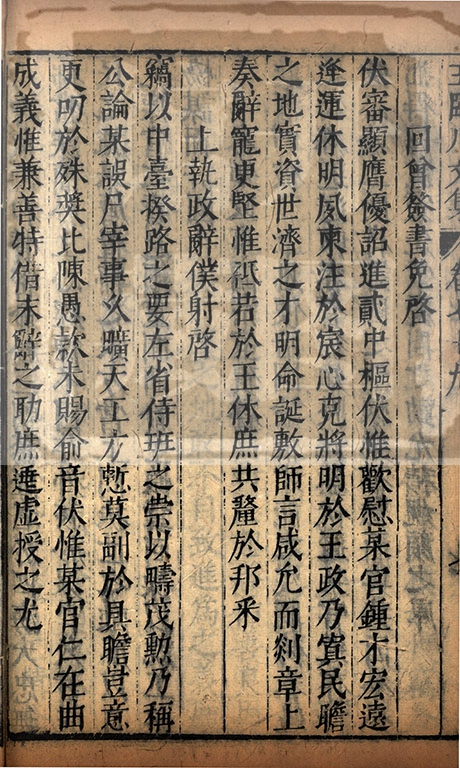 王臨川文集 卷七十九
回曾簽書免啓
伏審顯膺優詔進貳中樞伏惟歡慰某官鍾才宏遠
逢運休明夙柬注於宸心克將明於王政乃寘民瞻
之地實資世濟之才明命誕敷師言咸允而剡章上
奏辭寵更堅惟祗若於王休庶共釐於邦采
上執政辭僕射啓
竊以中臺揆路之要左省侍班之崇以疇茂勳乃稱
公論某誤尸宰事久曠天工方慙莫副於具瞻豈意
更叨於殊奬比陳愚款未賜俞音伏惟某官仁在曲
成義惟兼善特借未辭之助庶逭虛授之尤